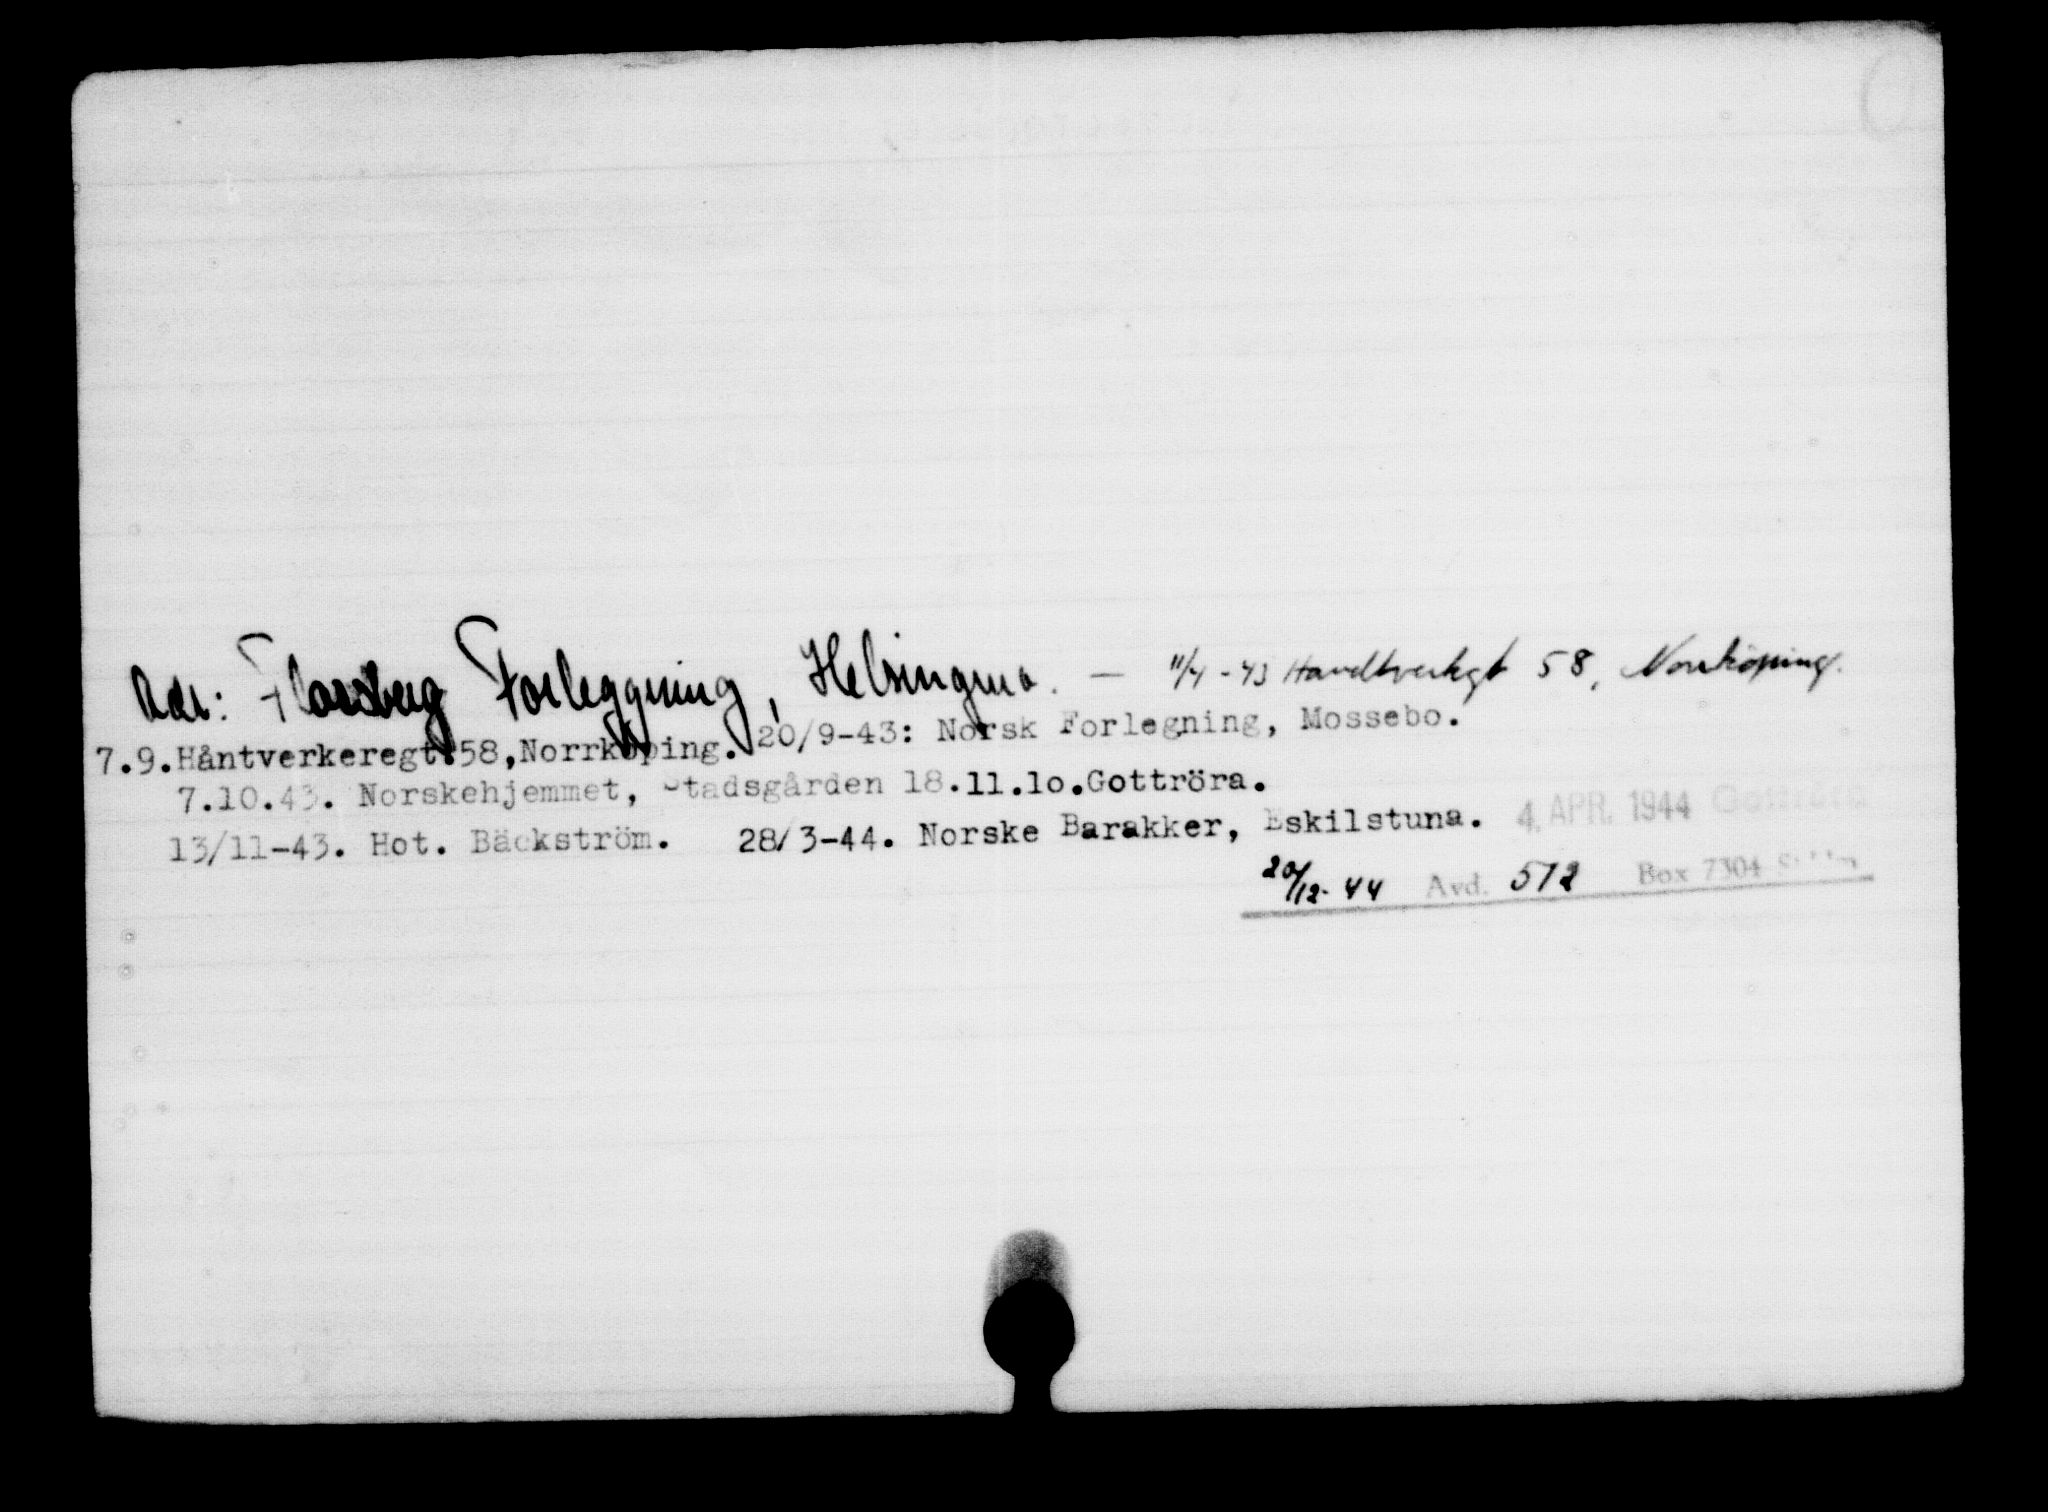 Adr: Flossberg Forleggning, Helsingmo. — 11/4-43 Handtverkgt 58, Norrköping.
7.9.Håntverkeregt.58,Norrköping. 20/9-43: Norsk Forlegning, Mossebo.
7.10.43. Norskehjemmet, Stadsgården 18.11.10.Gottröra.
13/11-43. Hot. Bäckström. 28/3-44. Norske Barakker, Eskilstuna. 4. APR. 1944 Gottröra
20/12-44 Avd. 572 Box 7304 Sthlm